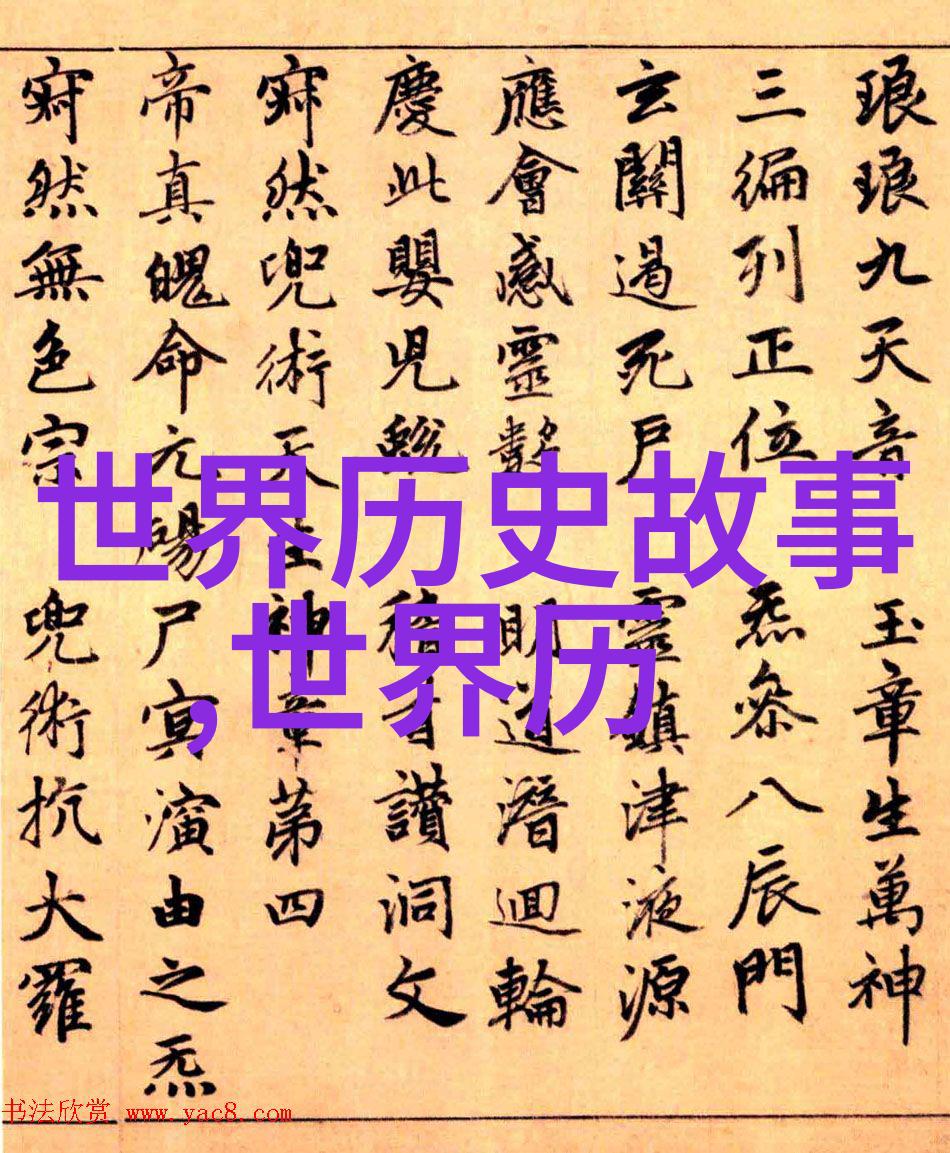 琅琅九天音 玉章生萬神
三徧列正位 炁參八辰門
玄關過死戶 靈鎮津液源
應會感靈數 明道潛迴輪
慶此嬰兒 稽首讚洞文
寂然兜術天生神章第四
帝真魄命元陽尸冥演由之炁
寂然無色宗 兜術抗大羅
世界历史故事
,世界历
书法欣赏 www.yac8.com